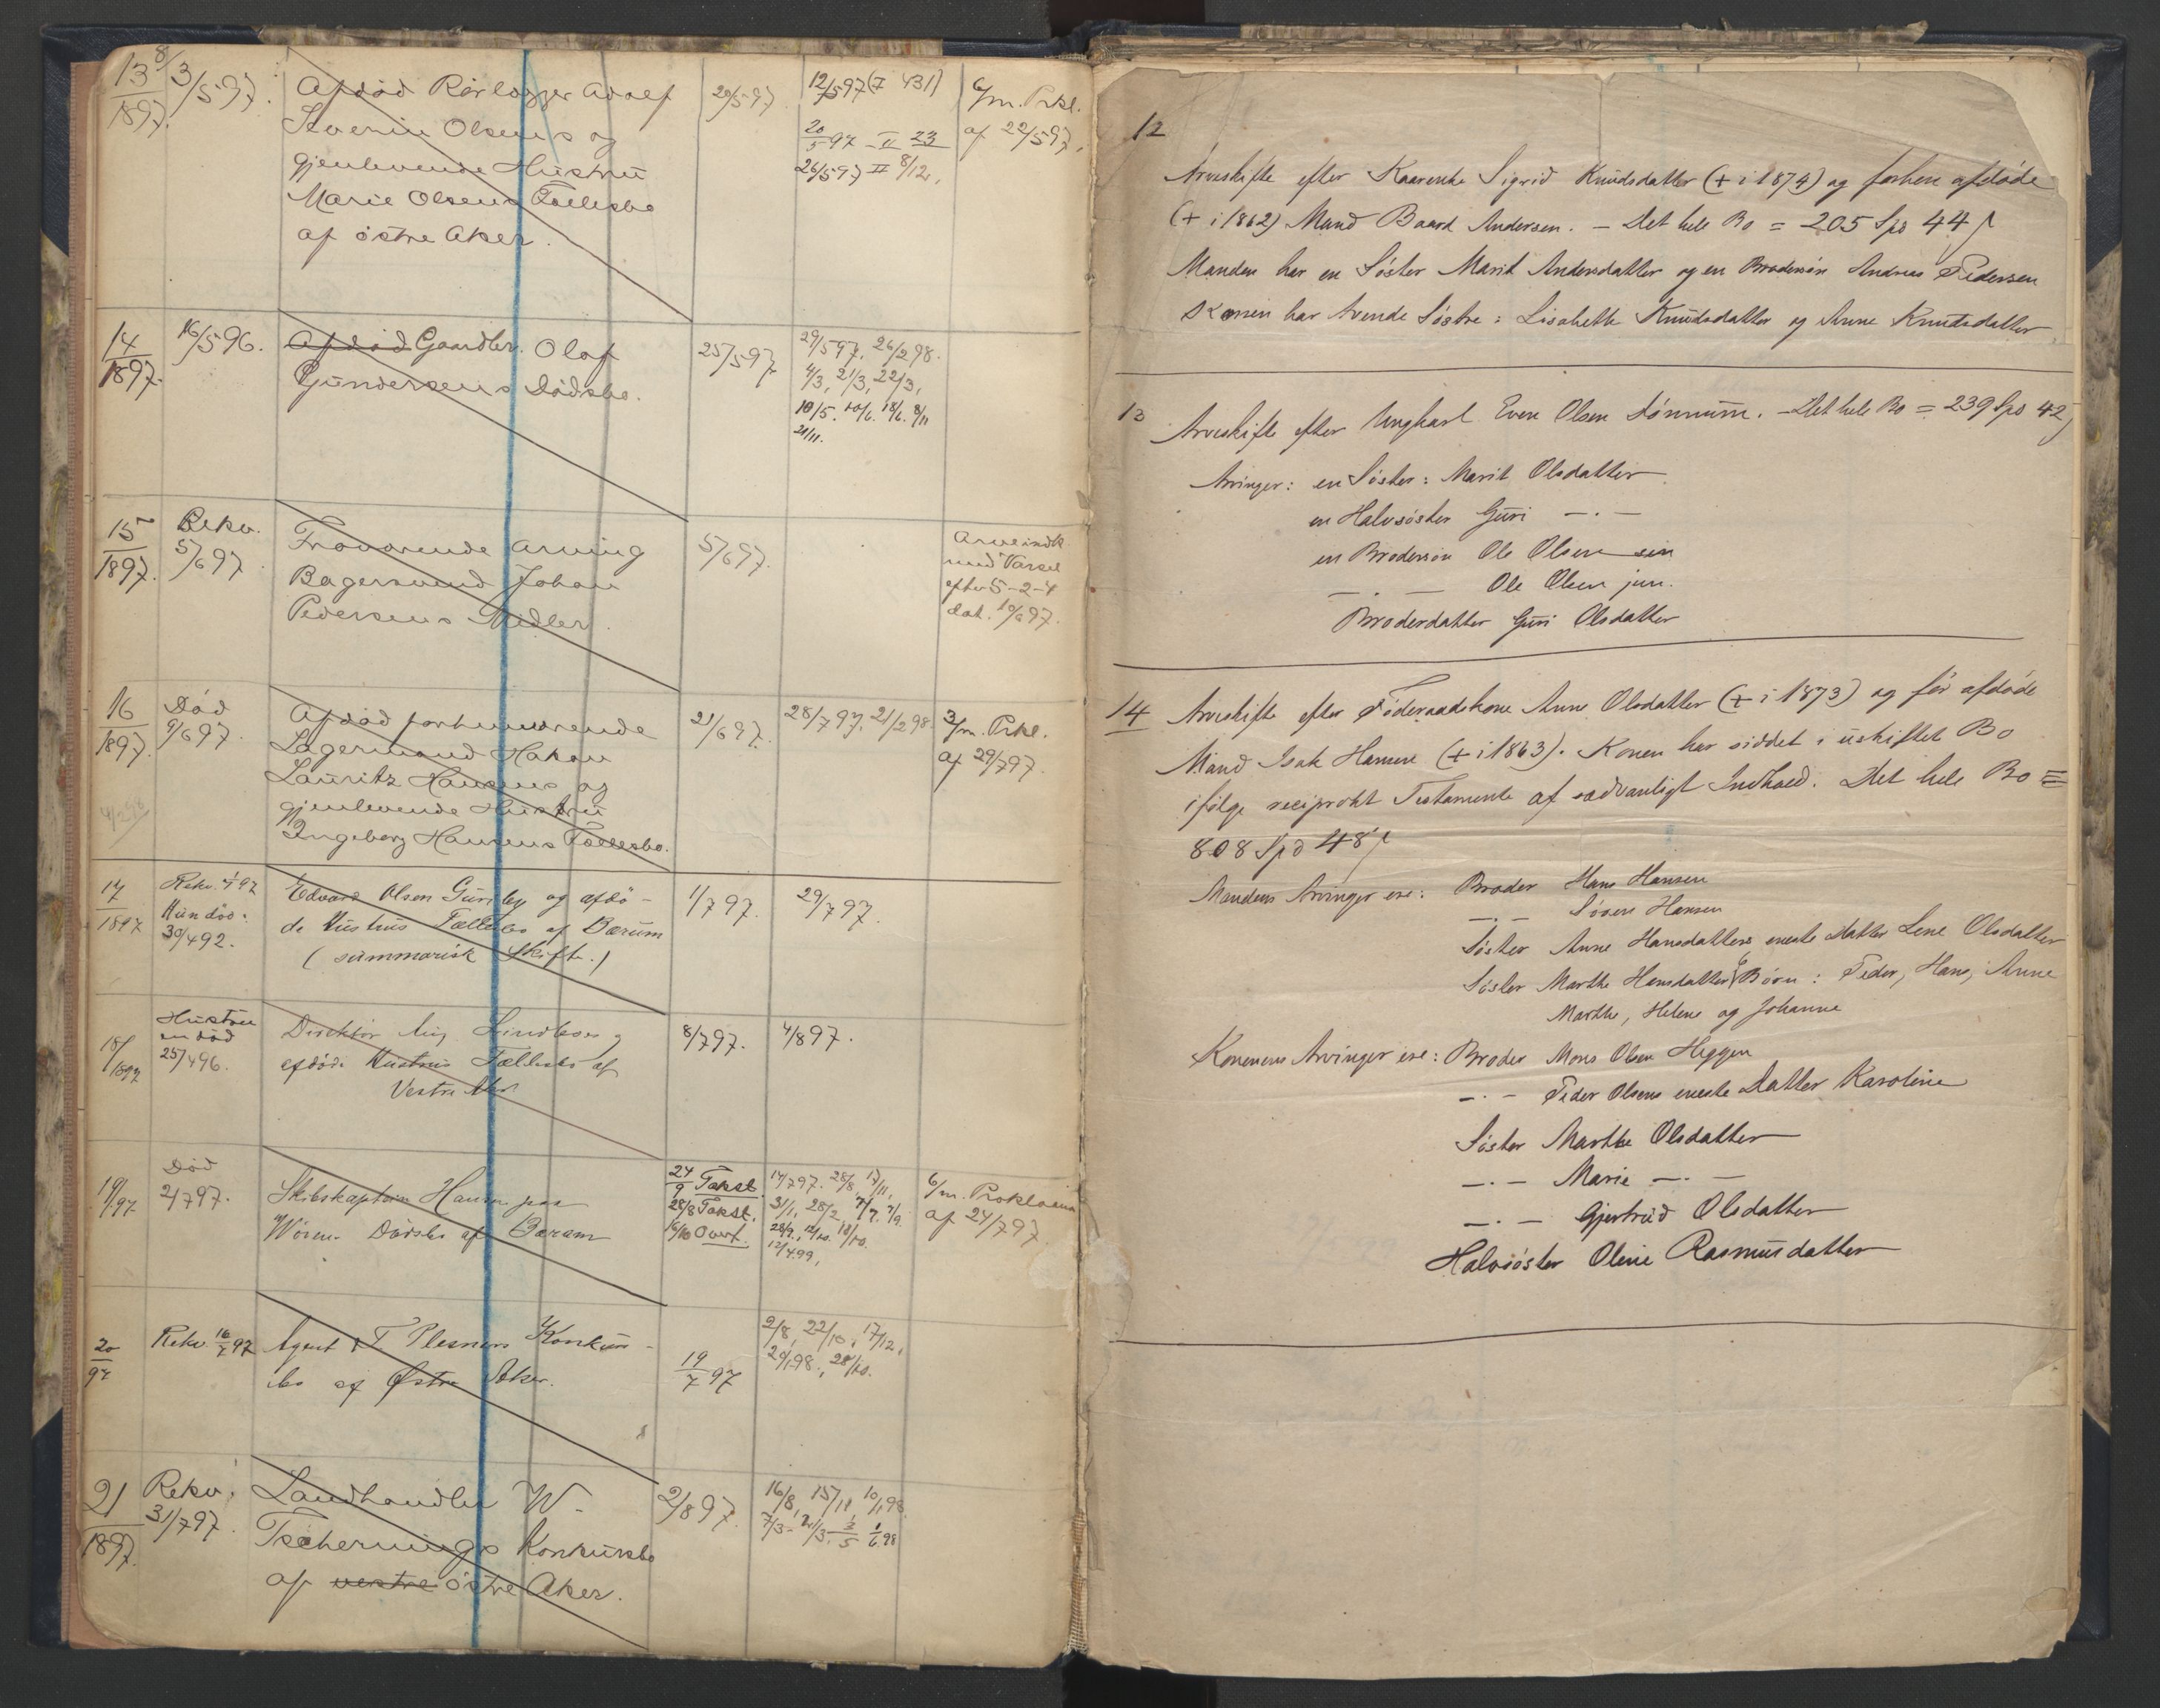 13/1897. 8/3/5 97. Afdød Rørlægger Adolf 20/5 97. 12/5 97 (I 431) 6/m. Prkl.
Severin Olsens og 20/5 97 - II 23 af 22/5 97.
gjenlevende Hustru 26/5 97 II 8/12.
Marie Olsens Fællesbo
af østre Aker.
14/1897. 16/5 96. Afdød Gaardbr. Olaf 25/5 97. 29/5 97. 26/2 98.
Gundersens Dødsbo. 4/3, 21/3, 22/3,
10/5. 10/6. 18/6. 8/11
21/11.
15/1897. Rekv. 5/6 97. Fraværende Arving 5/6 97. Arveindk.
Bagersvend Johan med Varsel
Pedersens Midler. efter 5-2-4
dat. 10/6 97.
16/1897. Død 9/6 97. Afdød forhenværende 21/6 97. 28/7 97. 21/2 98. 3/m. Prkl.
Lagermand Hakon af 29/7 97.
Lauritz Hansens og
gjenlevende Hustru
Ingeborg Hansens Fællesbo.
17/1897 Rekv. 1/7 97 Edvard Olsen Guriby og afdø- 1/7 97. 29/7 97.
Hun død: de Hustrus Fællesbo af Bærum
30/4 92. (summarisk Skifte.)
18/1897 Hustruen død Direktør Aug. Lindboes og 8/7 97. 4/8 97.
25/4 96. afdøde Hustrus Fællesbo af
Vestre Aker
19/97 Død 2/7 97. Skibskaptein Hansen paa 24/9 Takst. 14/7 97. 28/8, 17/11, 6/m. Proklama
Wøiens Dødsbo af Bærum 28/8 Takst. 31/1, 28/2, 7/7. 7/9. af 24/7 97.
16/10 Overt. 28/9., 12/10. 18/10.
12/4 99,
20/97 Rekv. 16/7 97 Agent T. Plesners Konkurs- 19/7 97 2/8, 22/10, 17/12,
bo af Østre Aker. 20/1 98., 28/10.
21/1897. Rekv. 31/7 97. Landhandler W. 2/8 97. 16/8, 15/11, 10/1 98
Tschernings Konkursbo 7/3 - 21/3. 3/5 1/6 98
af vestre østre Aker.
12
Arveskifte efter Kaarenhe Sigrid Knudsdatter (+ i 1874) og forhen afdøde
(+ i 1862) Mand Baard Andersen. - Det hele Bo = 205 Spd 44 ß
Manden har en Søster Marit Andersdatter og en Brodersøn Andreas Pedersen
Konen har tvende Søstre: Lisabette Knudsdatter og Anne Knudsdatter
13 Arveskifte efter Ungkarl Even Olsen Lønnum. - Det hele Bo = 239 Spd 42 ß
Arvinger: en Søster: Marit Olsdatter
en Halvsøster Guri -.-
en Brodersøn Ole Olsen sen
-.- Ole Olsen jun.
Broderdatter Guri Olsdatter
14 Arveskifte efter Føderaadskone Anne Olsdatter (+ i 1873) og før afdøde
Mand Isak Hansen (+ i 1863). Konen har siddet i uskiftet Bo
ifølge reciprokt Testamente af sædvanligt Indhold. Det hele Bo =
808 Spd 48 ß
Mandens Arvinger ere: Broder Hans Hansen
-.- Søren Hansen
Søster Anne Hansdatters eneste Datter Lene Olsdatter
Søster Marthe Hansdatters 6 Børn: Peder, Hans, Anne
Marthe, Helene og Johanne
Konenens Arvinger ere: Broder Mons Olsen Heggen
-.- Peder Olsens eneste Datter Karoline
Søster Marthe Olsdatter
-.- Marie -.-
-.- Gjertrud Olsdatter
Halvsøster Oline Rasmusdatter